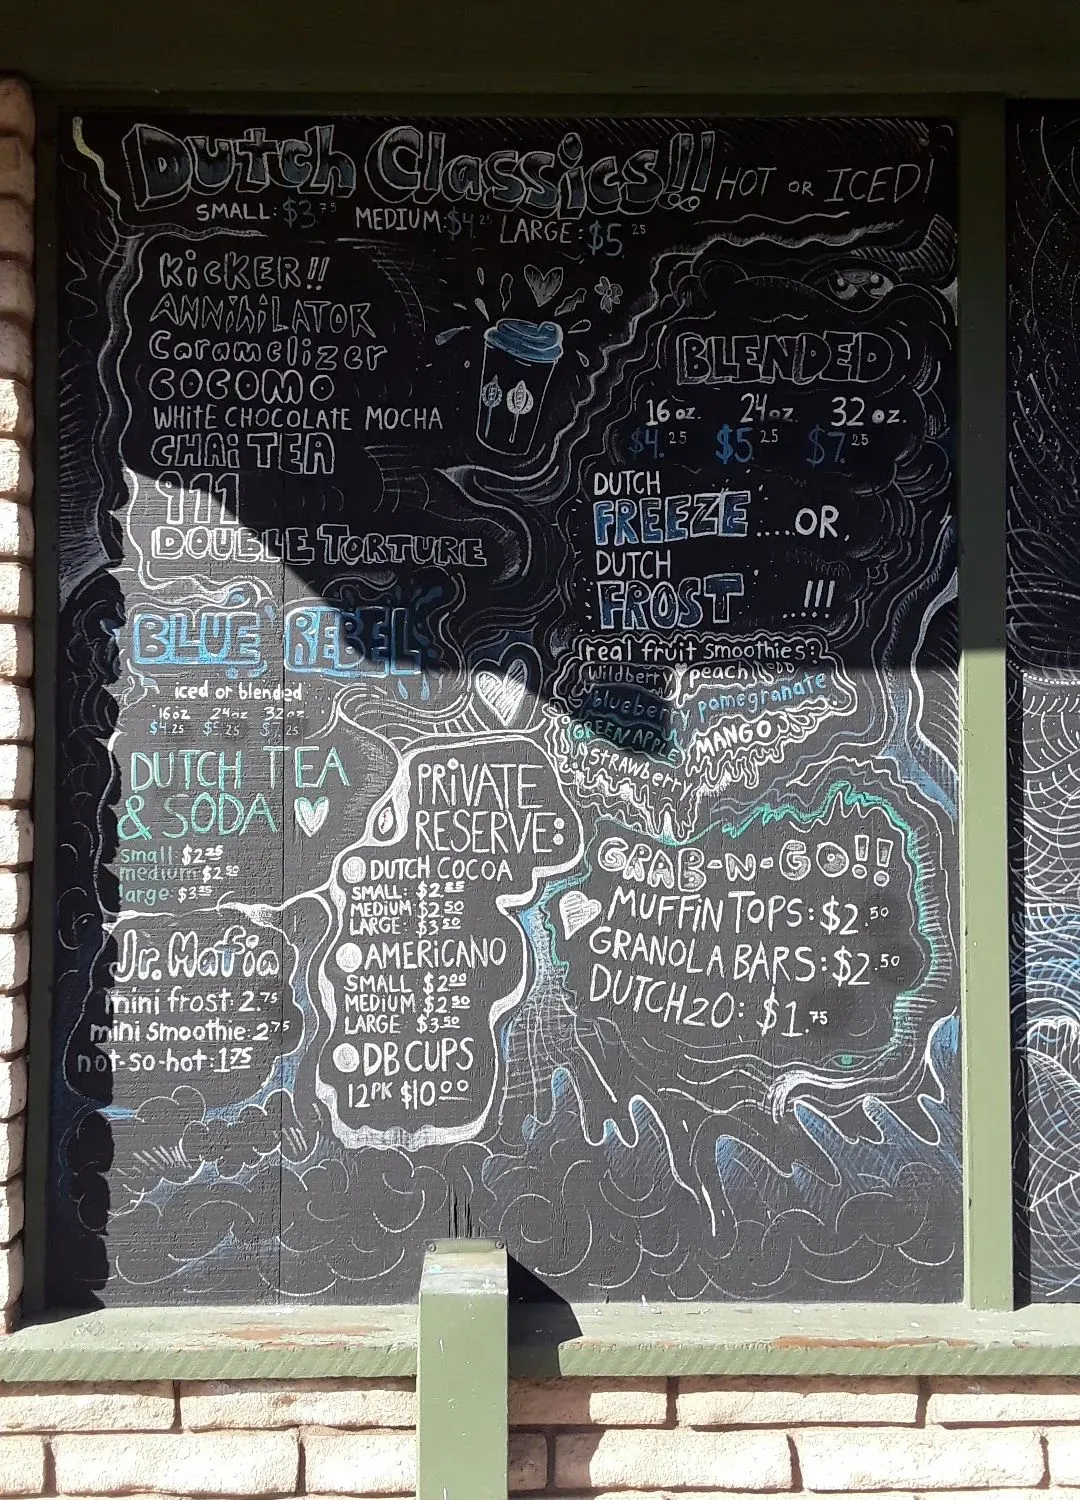 Dutch Classics!! HOT OR ICED!
SMALL: $3.75 MEDIUM: $4.25 LARGE: $5.25
KiCKER!!
ANNihiLATOR
Caramelizer
COCOMO
WHitE CHOCOLATE MOCHA
CHAi TEA
911
DOUBLE TORTURE
BLUE REBEL
iced or blended
16oz 24oz 32oz
$4.25 $5.25 $7.25
DUTCH TEA
& SODA
small $2.25
medium $2.50
large $3.25
Jr. Mafia
mini frost: 2.75
mini smoothie: 2.75
not-so-hot: 1.75
PRiVATE
RESERVE:
DUTCH COCOA
SMALL: $2.25
MEDIUM $2.50
LARGE: $3.50
AMERiCANO
SMALL $2.00
MEDIUM $2.50
LARGE $3.50
DB CUPS
12PK $10.00
BLENDED
16 oz. 24oz 32 oz.
$4.25 $5.25 $7.25
DUTCH
FREEZE ....OR,
DUTCH
FROST ...!!!
real fruit smoothies:
wildberry peach
blueberry pomegranate
GREEN APPLE MANGO
STRAWberry
GRAB-N-GO!!
MUFFiN TOPS: $2.50
GRANOLA BARS: $2.50
DUTCH2O: $1.75